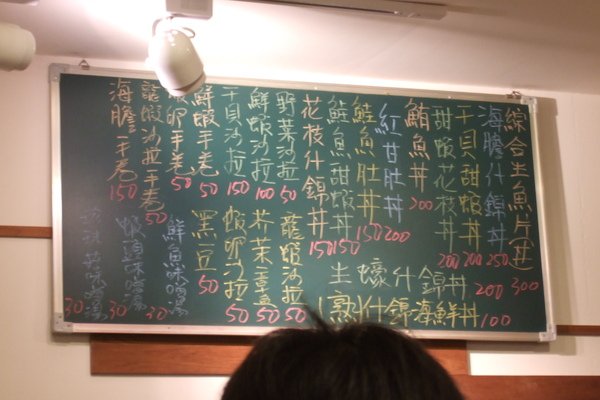 綜合生魚片(丼) 300
海膽什錦丼 250
干貝甜蝦丼 200
甜蝦花枝丼 200
鮪魚丼 200
紅甘肚丼 200
鮭魚肚丼 150
鮭魚甜蝦丼 150
花枝什錦丼 150
野菜沙拉 50
鮮蝦沙拉 100
干貝沙拉 150
鮮蝦手卷 50
蝦卵手卷 50
龍蝦沙拉手卷 50
海膽手卷 150
生蠔什錦丼 200
(熟)什錦海鮮丼 100
龍蝦沙拉 50
芥茉章 50
蝦卵沙拉 50
黑豆 50
鮮魚味噌湯 30
蝦頭味噌湯 30
菇味噌湯 30